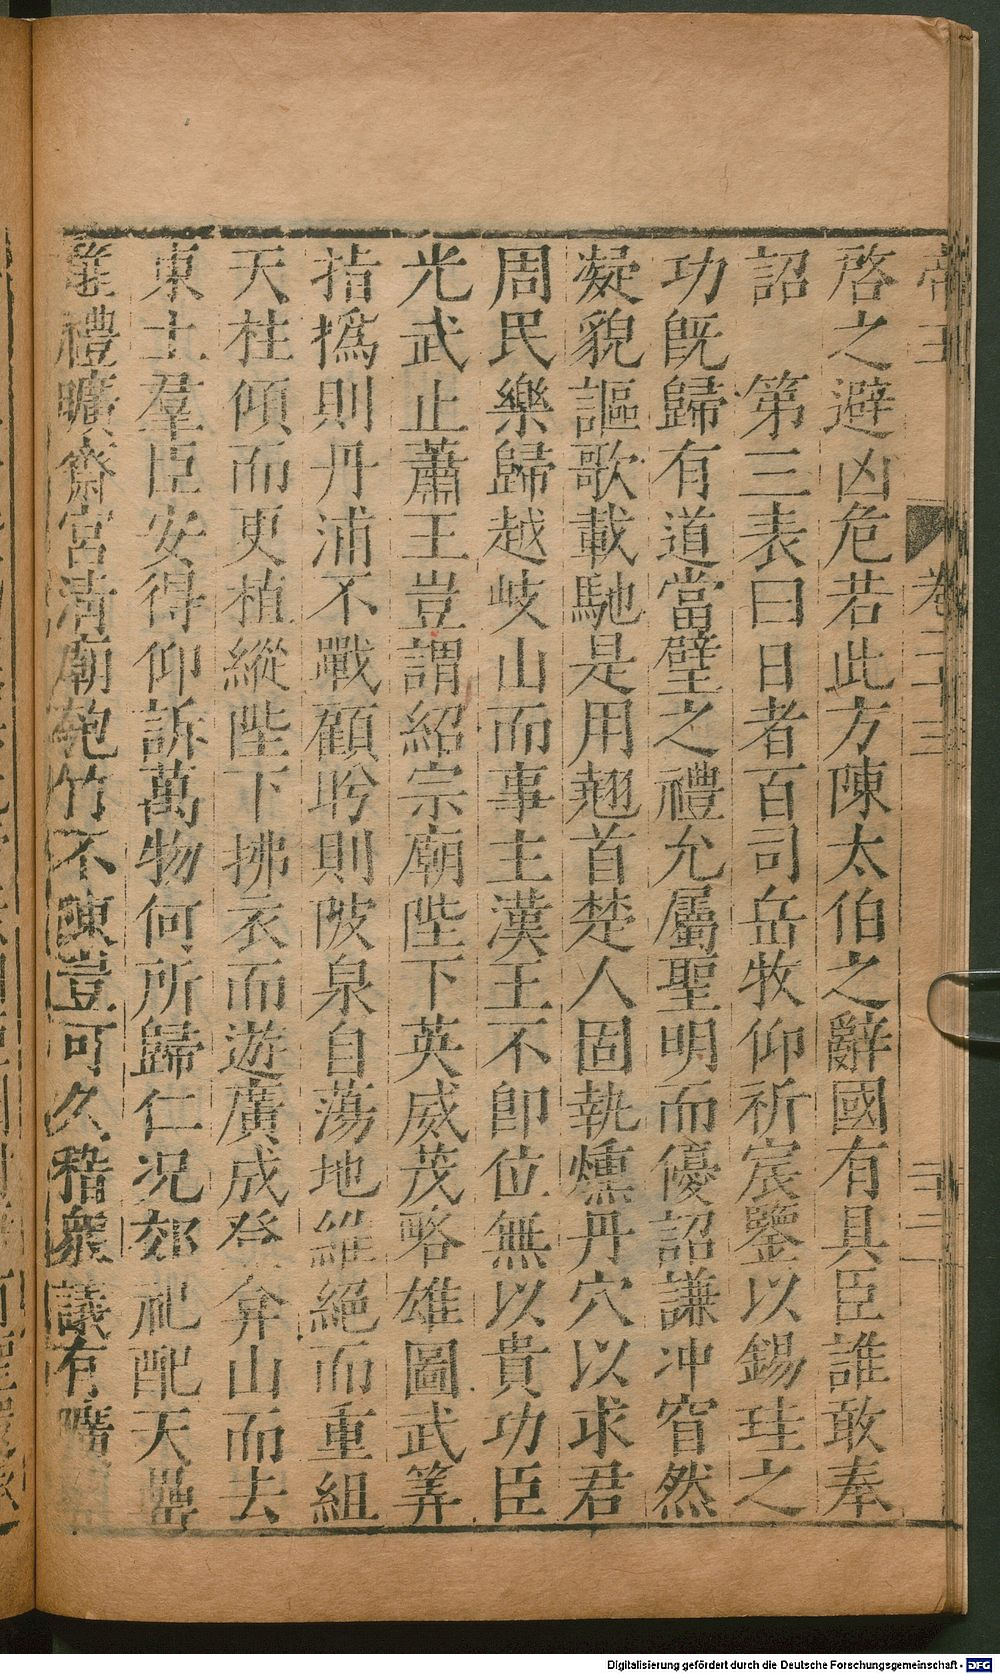 啓之避凶危若此方陳太伯之辭國有具臣誰敢奉
詔　第三表曰日者百司岳牧仰祈宸鑒以錫珪之
功旣歸有道當璧之禮允屬聖明而優詔謙冲窅然
凝貌謳歌載馳是用翹首楚人固執燻丹穴以求君
周民樂歸越岐山而事主漢王不卽位無以貴功臣
光武止蕭王豈謂紹宗廟陛下英威茂略雄圖武筭
指撝則丹浦不戰顧盻則阪泉自蕩地維絕而重組
天柱傾而更植縱陛下拂衣而遊廣成登弇山而去
東土羣臣安得仰訴萬物何所歸仁况郊祀配天罍
篚禮曠齋宮清廟匏竹不陳豈可久稽衆議有曠
帝王　卷三十三
Digitalisierung gefördert durch die Deutsche Forschungsgemeinschaft - DFG